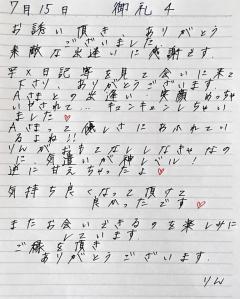 7月15日 御礼 4
お誘い頂き、ありがとう
ございました
素敵な出逢いに感謝です。
写メ日記等を見て会いに来て
下さり、ありがとうございます。
Aさまとの出逢いに、笑顔めっちゃ
いやされて キュンキュンしちゃい
ました♡
Aさまって優しさにあふれてい
るよね!!
りんがおもてなししなきゃなの
に、気遣いが神レベル!
逆に甘えちゃったよ♡
気持ち良くなって頂けて
良かったです♡
またお会いできるのを楽しみに
しています。
ご縁を頂き
ありがとうございます。
りん